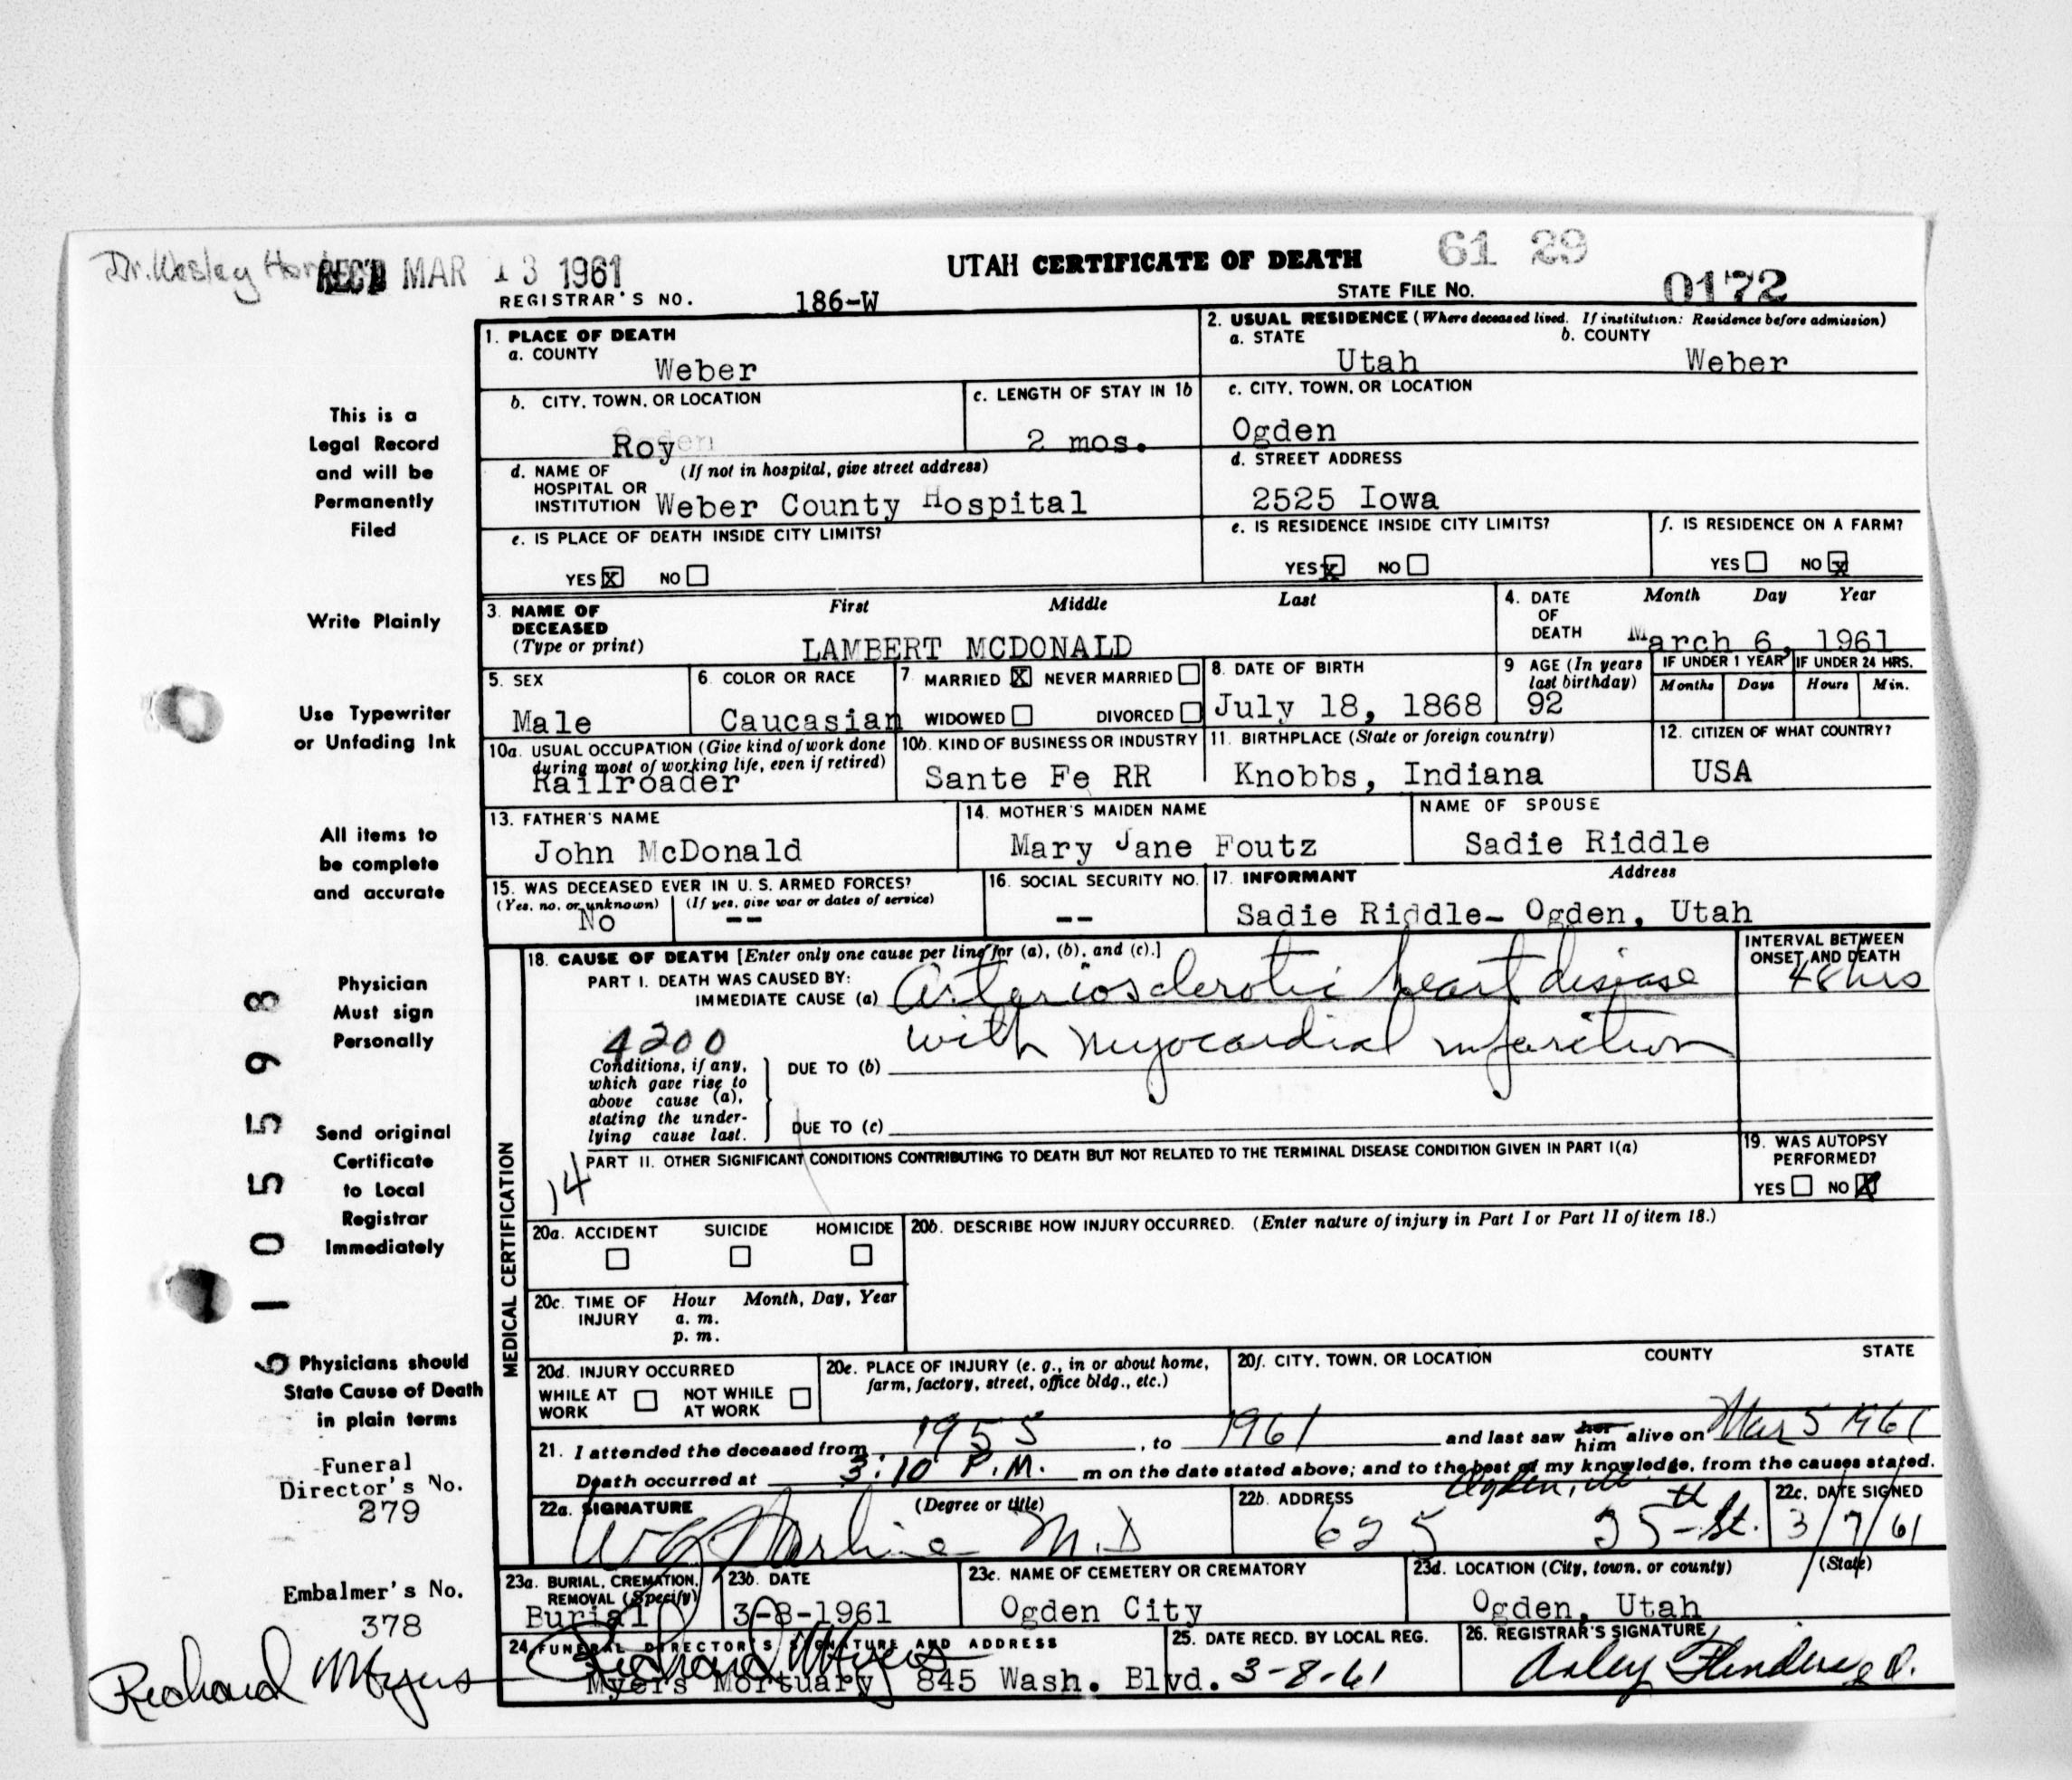 Dr. Wesley
REC'D MAR 13 1961
UTAH CERTIFICATE OF DEATH
61 29
REGISTRAR'S NO. 186-W
STATE FILE NO. 0172
1. PLACE OF DEATH
a. COUNTY
Weber
2. USUAL RESIDENCE (Where deceased lived. If institution: Residence before admission)
a. STATE b. COUNTY
Utah Weber
b. CITY, TOWN, OR LOCATION
Roy
c. LENGTH OF STAY IN 1b
2 mos.
c. CITY, TOWN, OR LOCATION
Ogden
d. NAME OF (If not in hospital, give street address)
HOSPITAL OR
INSTITUTION Weber County Hospital
d. STREET ADDRESS
2525 Iowa
e. IS PLACE OF DEATH INSIDE CITY LIMITS?
YES X NO
e. IS RESIDENCE INSIDE CITY LIMITS?
YES X NO
f. IS RESIDENCE ON A FARM?
YES NO X
3. NAME OF DECEASED
(Type or print)
First Middle Last
LAMBERT MCDONALD
4. DATE OF DEATH
Month Day Year
March 6, 1961
5. SEX
Male
6. COLOR OR RACE
Caucasian
7. MARRIED X NEVER MARRIED
WIDOWED DIVORCED
8. DATE OF BIRTH
July 18, 1868
9 AGE (In years last birthday)
92
IF UNDER 1 YEAR
Months Days
IF UNDER 24 HRS.
Hours Min.
10a. USUAL OCCUPATION (Give kind of work done
during most of working life, even if retired)
Railroader
10b. KIND OF BUSINESS OR INDUSTRY
Sante Fe RR
11. BIRTHPLACE (State or foreign country)
Knobbs, Indiana
12. CITIZEN OF WHAT COUNTRY?
USA
13. FATHER'S NAME
John McDonald
14. MOTHER'S MAIDEN NAME
Mary Jane Foutz
NAME OF SPOUSE
Sadie Riddle
15. WAS DECEASED EVER IN U. S. ARMED FORCES?
(Yes, no, or unknown) (If yes, give war or dates of service)
No --
16. SOCIAL SECURITY NO.
--
17. INFORMANT Address
Sadie Riddle- Ogden, Utah
MEDICAL CERTIFICATION
18. CAUSE OF DEATH [Enter only one cause per line for (a), (b), and (c).]
PART I. DEATH WAS CAUSED BY:
IMMEDIATE CAUSE (a) Arteriosclerotic heart disease
with myocardial infarction
INTERVAL BETWEEN
ONSET AND DEATH
48 hrs
4200
Conditions, if any,
which gave rise to
above cause (a),
stating the under-
lying cause last.
DUE TO (b)
DUE TO (c)
14
PART II. OTHER SIGNIFICANT CONDITIONS CONTRIBUTING TO DEATH BUT NOT RELATED TO THE TERMINAL DISEASE CONDITION GIVEN IN PART I(a)
19. WAS AUTOPSY
PERFORMED?
YES NO X
20a. ACCIDENT SUICIDE HOMICIDE
20b. DESCRIBE HOW INJURY OCCURRED. (Enter nature of injury in Part I or Part II of item 18.)
20c. TIME OF INJURY
Hour Month, Day, Year
a. m.
p. m.
20d. INJURY OCCURRED
WHILE AT WORK NOT WHILE AT WORK
20e. PLACE OF INJURY (e. g., in or about home,
farm, factory, street, office bldg., etc.)
20f. CITY, TOWN, OR LOCATION COUNTY STATE
21. I attended the deceased from 1955, to 1961 and last saw her him alive on Mar 5 1961
Death occurred at 3:10 P.M. m on the date stated above; and to the best of my knowledge, from the causes stated.
22a. SIGNATURE (Degree or title)
M.D
22b. ADDRESS
Ogden, Ut
625 25th St.
22c. DATE SIGNED
3/7/61
23a. BURIAL, CREMATION,
REMOVAL (Specify)
Burial
23b. DATE
3-8-1961
23c. NAME OF CEMETERY OR CREMATORY
Ogden City
23d. LOCATION (City, town, or county) (State)
Ogden, Utah
24. FUNERAL DIRECTOR'S SIGNATURE AND ADDRESS
Richard Myers
Myers Mortuary 845 Wash. Blvd.
25. DATE RECD. BY LOCAL REG.
3-8-61
26. REGISTRAR'S SIGNATURE
This is a
Legal Record
and will be
Permanently
Filed
Write Plainly
Use Typewriter
or Unfading Ink
All items to
be complete
and accurate
Physician
Must sign
Personally
Send original
Certificate
to Local
Registrar
Immediately
Physicians should
State Cause of Death
in plain terms
6 105598
Funeral
Director's No.
279
Embalmer's No.
378
Richard Myers